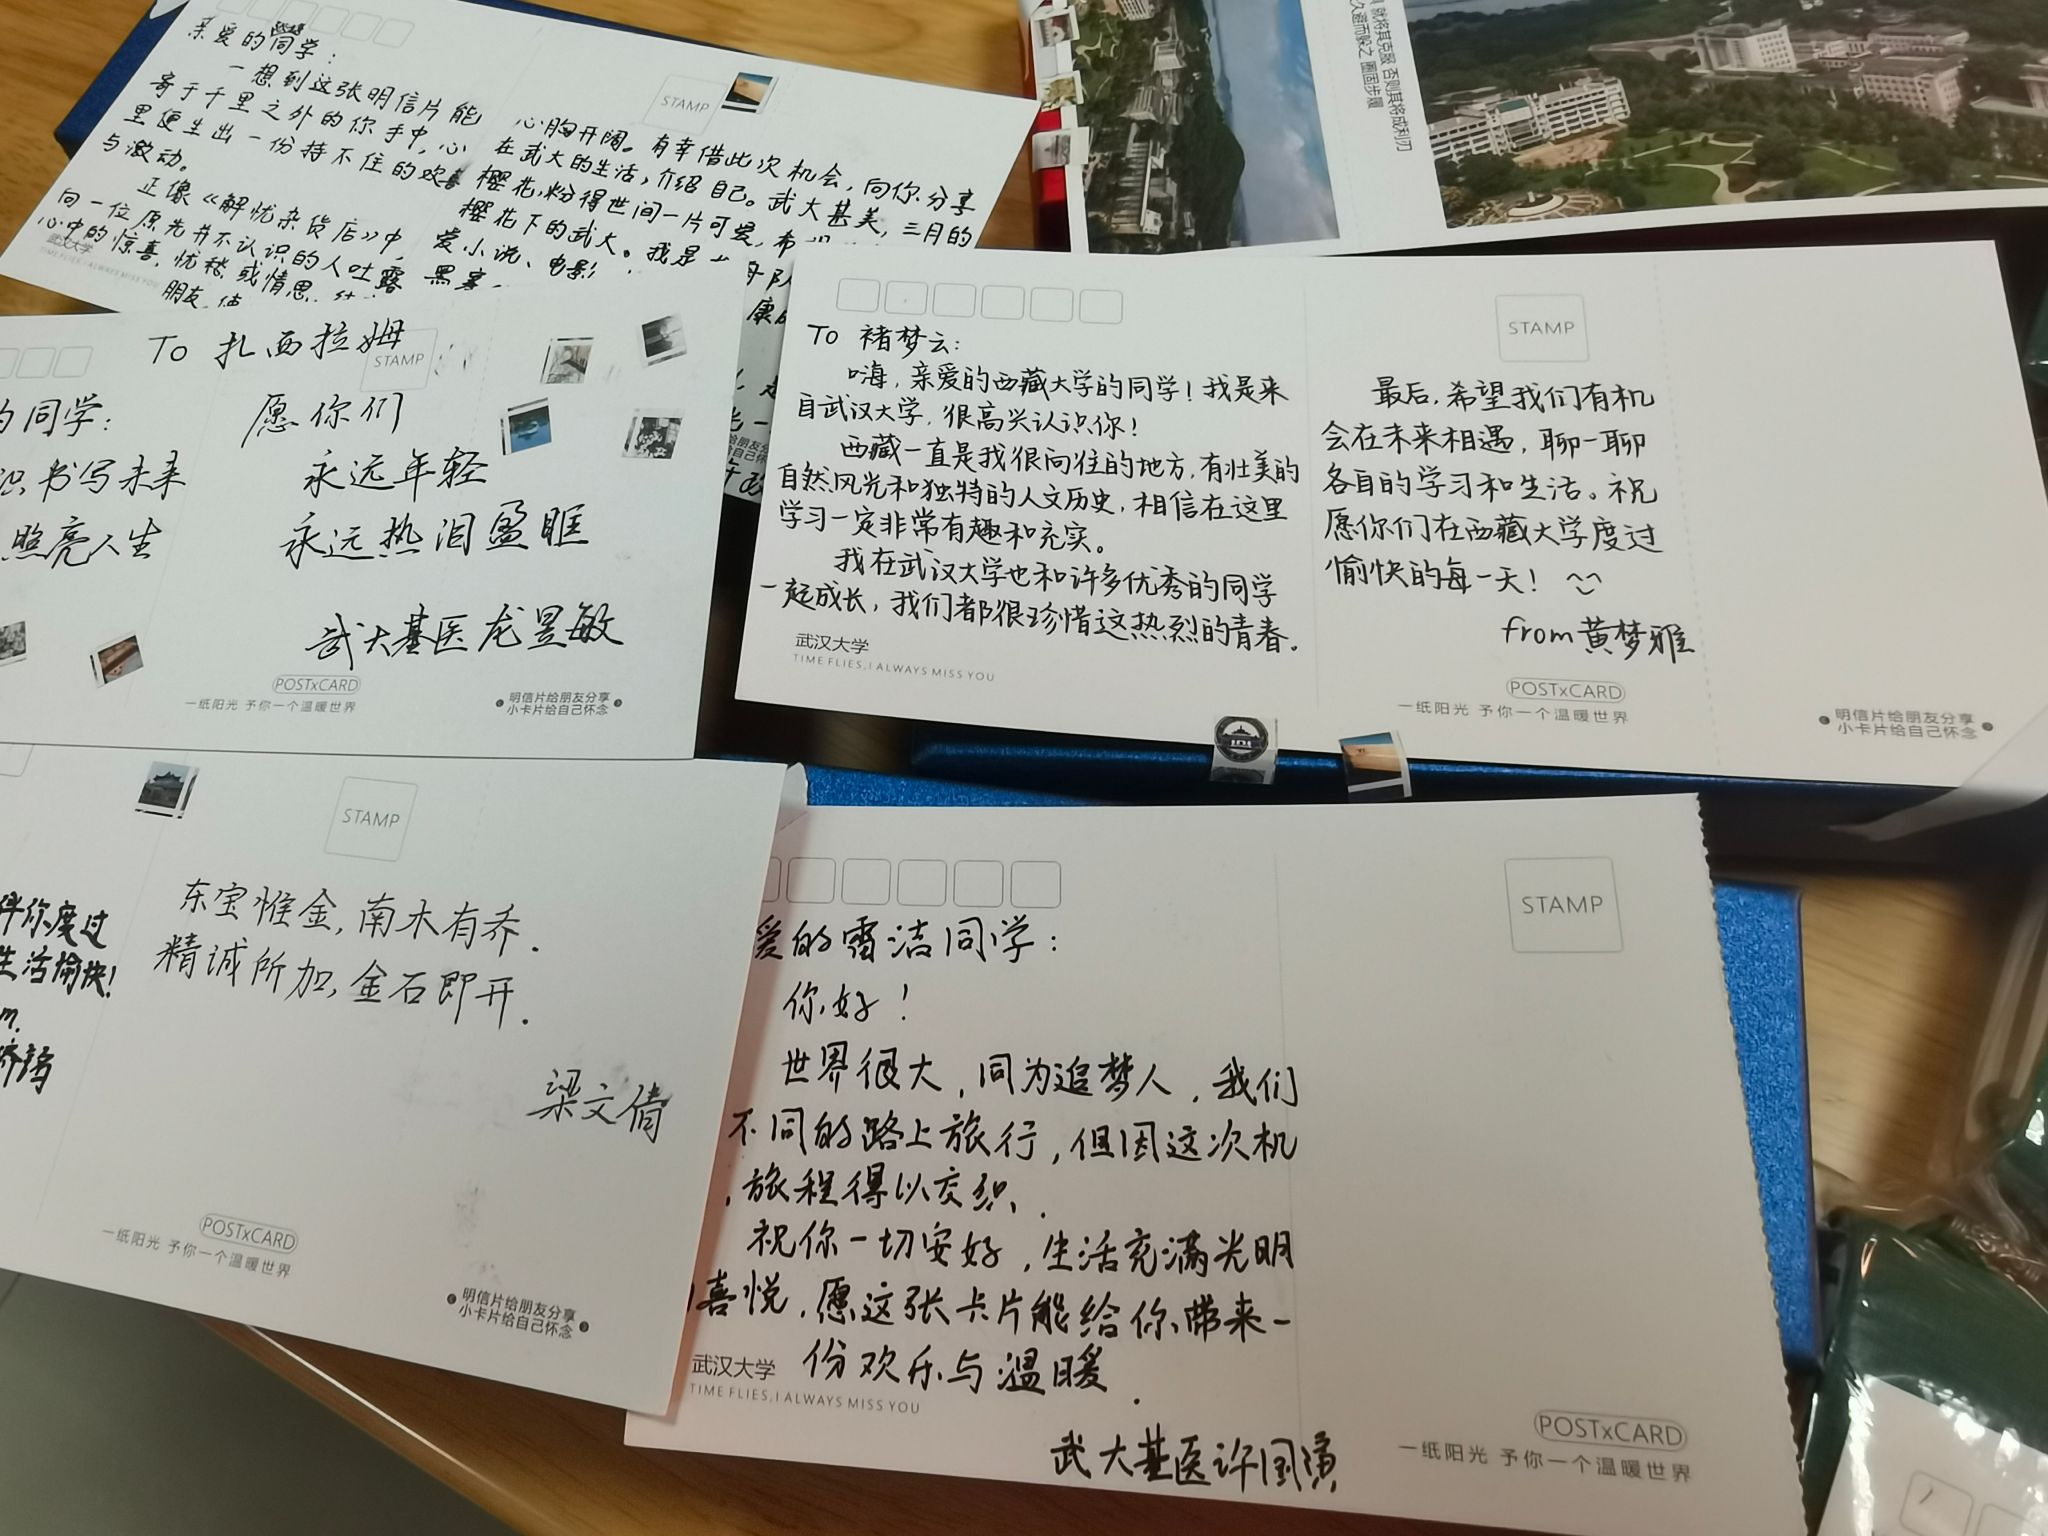 亲爱的同学:
一想到这张明信片能
寄于千里之外的你手中,心
里便生出一份持不住的欢喜
与激动。
正像《解忧杂货店》中,
向一位原先并不认识的人吐露
心中的惊喜,忧愁,或情思,
朋友,
武汉大学
TIME FLIES, I ALWAYS MISS YOU
STAMP
心胸开阔。有幸借此次机会,向你分享
在武大的生活,介绍自己。武大甚美,三月的
樱花,粉得世间一片可爱,
樱花下的武大。我是
爱小说、电影
黑塞
就将其克服 否则其将成利刃
久避而躲之 圄固步履
To 扎西拉姆
STAMP
的同学:
识书写未来
照亮人生
愿你们
永远年轻
永远热泪盈眶
武大基医龙昱敏
POSTxCARD
一纸阳光 予你一个温暖世界
明信片给朋友分享
小卡片给自己怀念
To 褚梦云:
嗨,亲爱的西藏大学的同学!我是来
自武汉大学,很高兴认识你!
西藏一直是我很向往的地方,有壮美的
自然风光和独特的人文历史,相信在这里
学习一定非常有趣和充实。
我在武汉大学也和许多优秀的同学
一起成长,我们都很珍惜这热烈的青春。
武汉大学
TIME FLIES, I ALWAYS MISS YOU
STAMP
最后,希望我们有机
会在未来相遇,聊一聊
各自的学习和生活。祝
愿你们在西藏大学度过
愉快的每一天!
from 黄梦雅
POSTxCARD
一纸阳光 予你一个温暖世界
明信片给朋友分享
小卡片给自己怀念
STAMP
伴你度过
生活愉快!
东宝惟金,南木有乔.
精诚所加,金石即开.
梁文倩
POSTxCARD
一纸阳光 予你一个温暖世界
明信片给朋友分享
小卡片给自己怀念
STAMP
爱的雷洁同学:
你好!
世界很大,同为追梦人,我们
不同的路上旅行,但因这次机
,旅程得以交织.
祝你一切安好,生活充满光明
喜悦,愿这张卡片能给你带来一
份欢乐与温暖.
武汉大学
TIME FLIES, I ALWAYS MISS YOU
武大基医许国演
POSTxCARD
一纸阳光 予你一个温暖世界